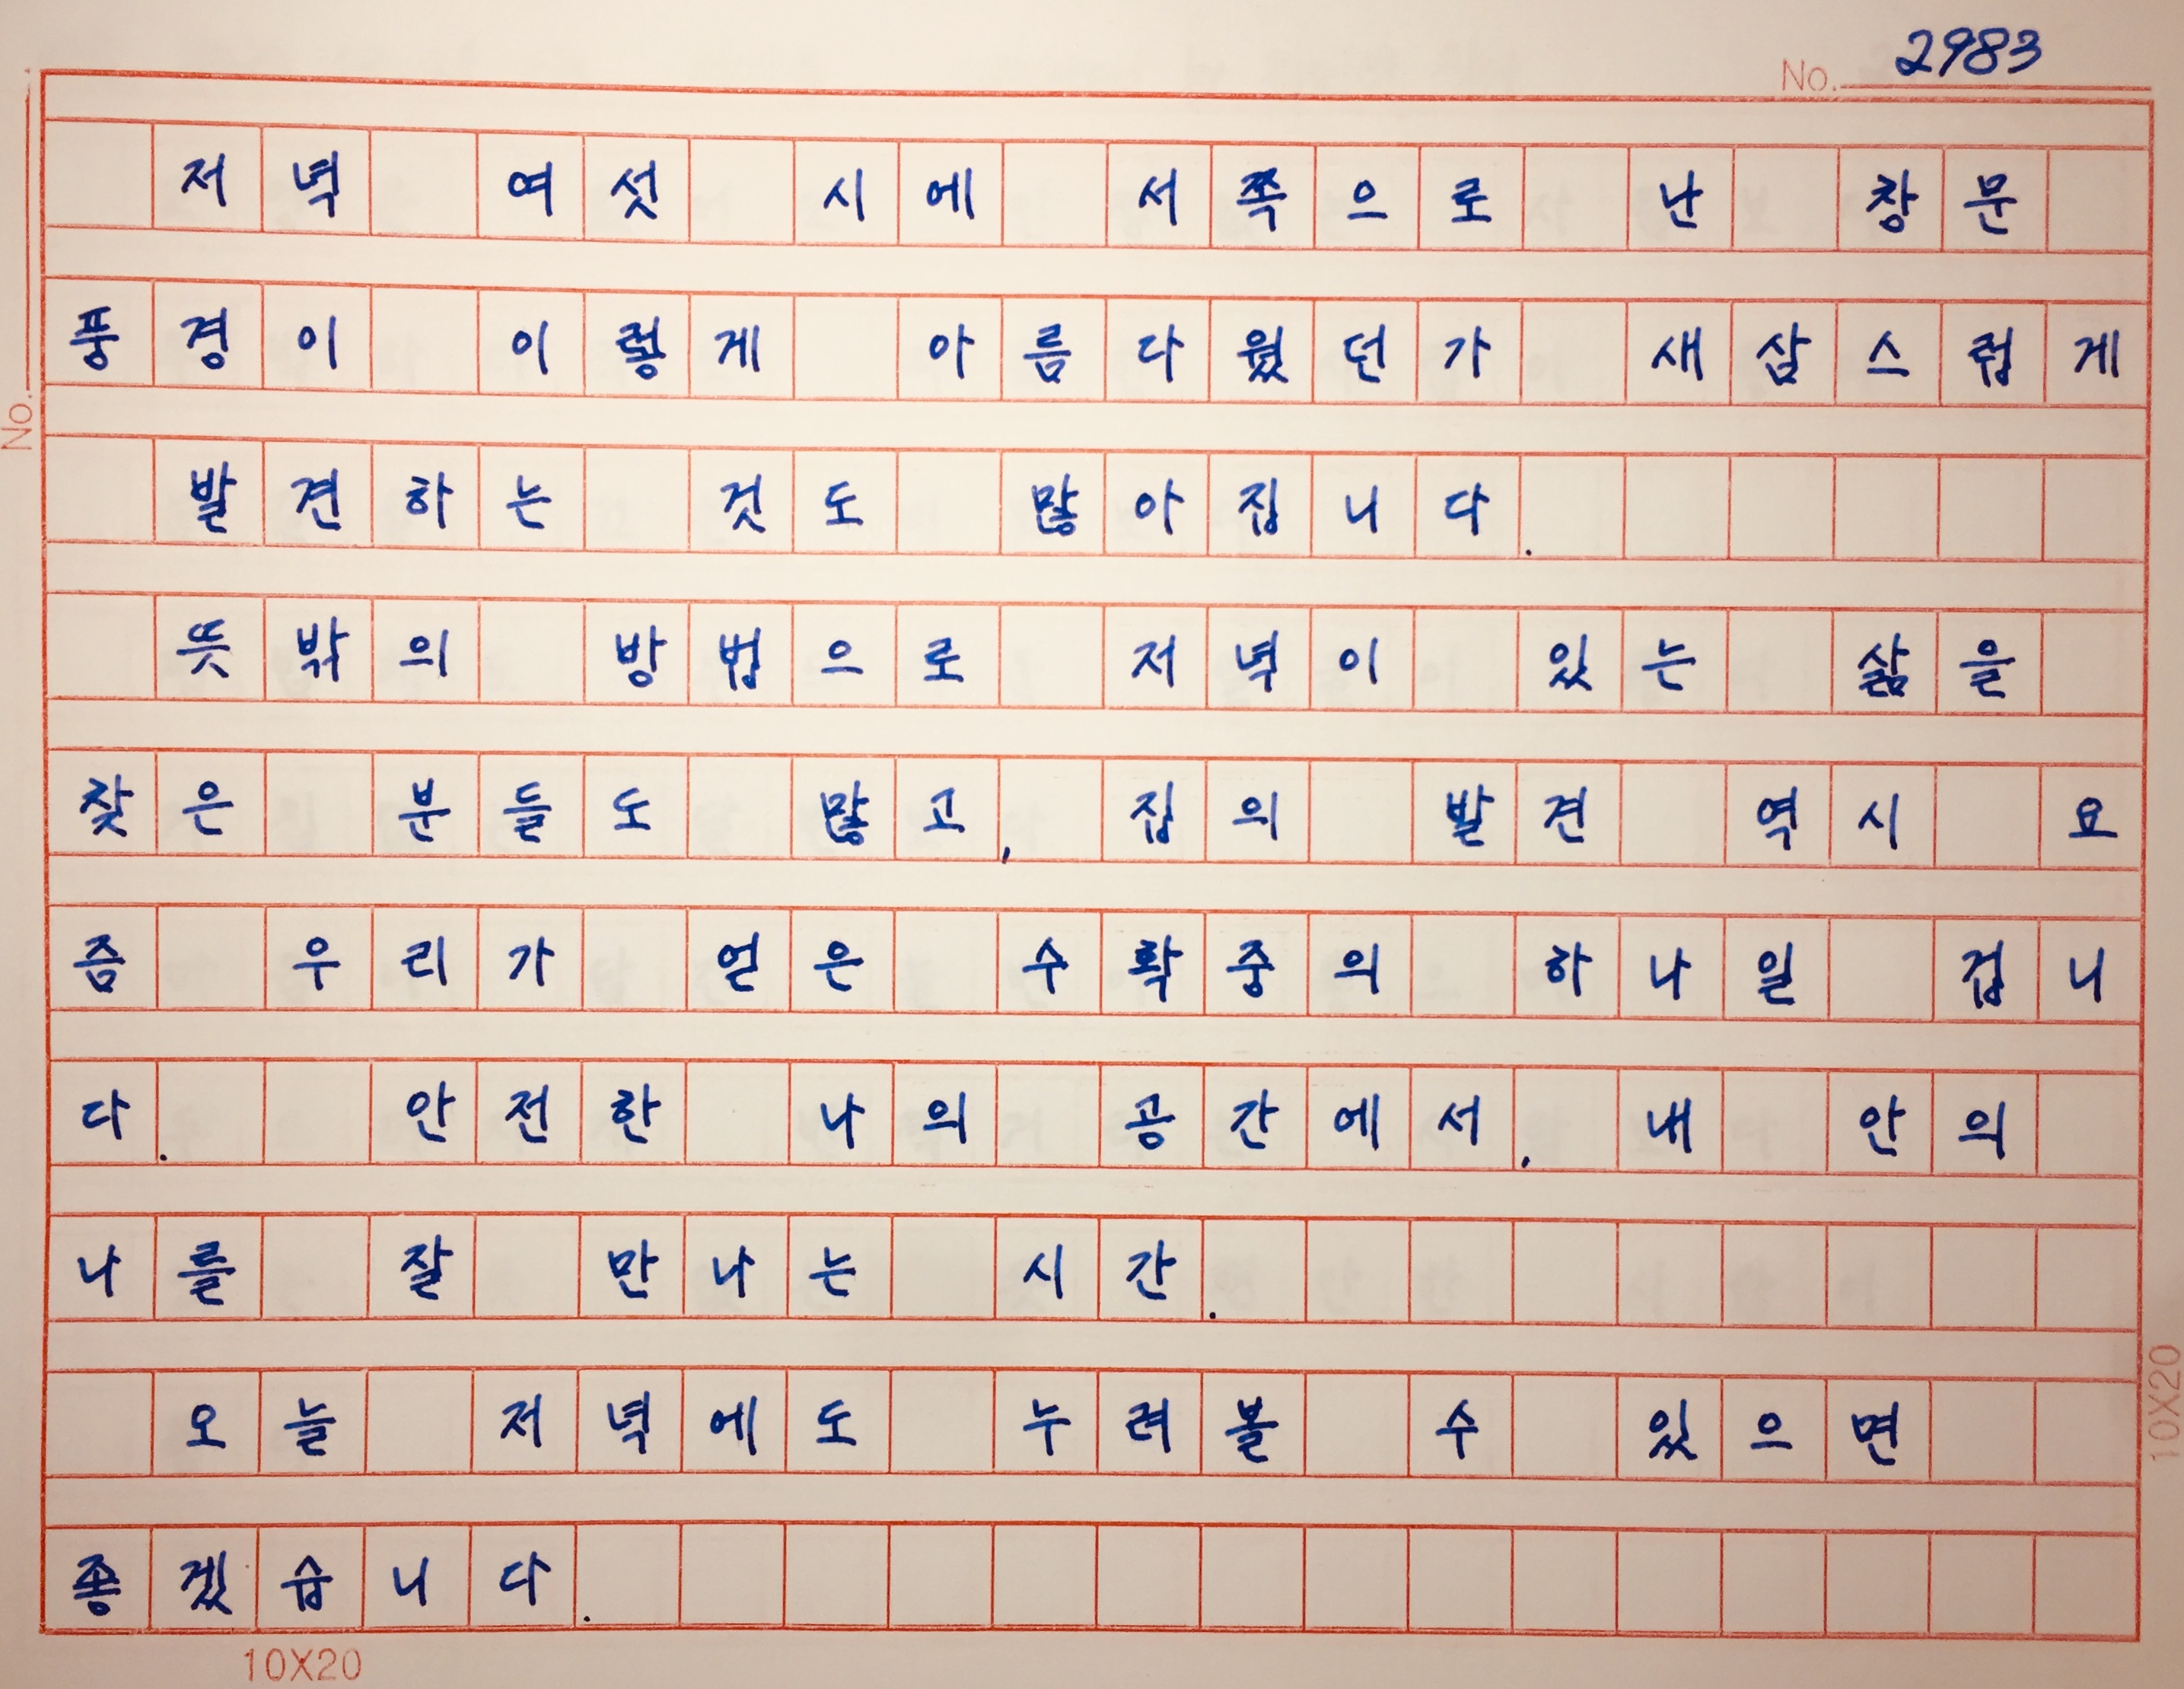 No. 2983
저녁 여섯 시에 서쪽으로 난 창문
풍경이 이렇게 아름다웠던가 새삼스럽게
발견하는 것도 많아집니다.
뜻밖의 방법으로 저녁이 있는 삶을
찾은 분들도 많고, 집의 발견 역시 요
즘 우리가 얻은 수확중의 하나일 겁니
다. 안전한 나의 공간에서, 내 안의
나를 잘 만나는 시간.
오늘 저녁에도 누려볼 수 있으면
좋겠습니다.
10X20
No.
10X20